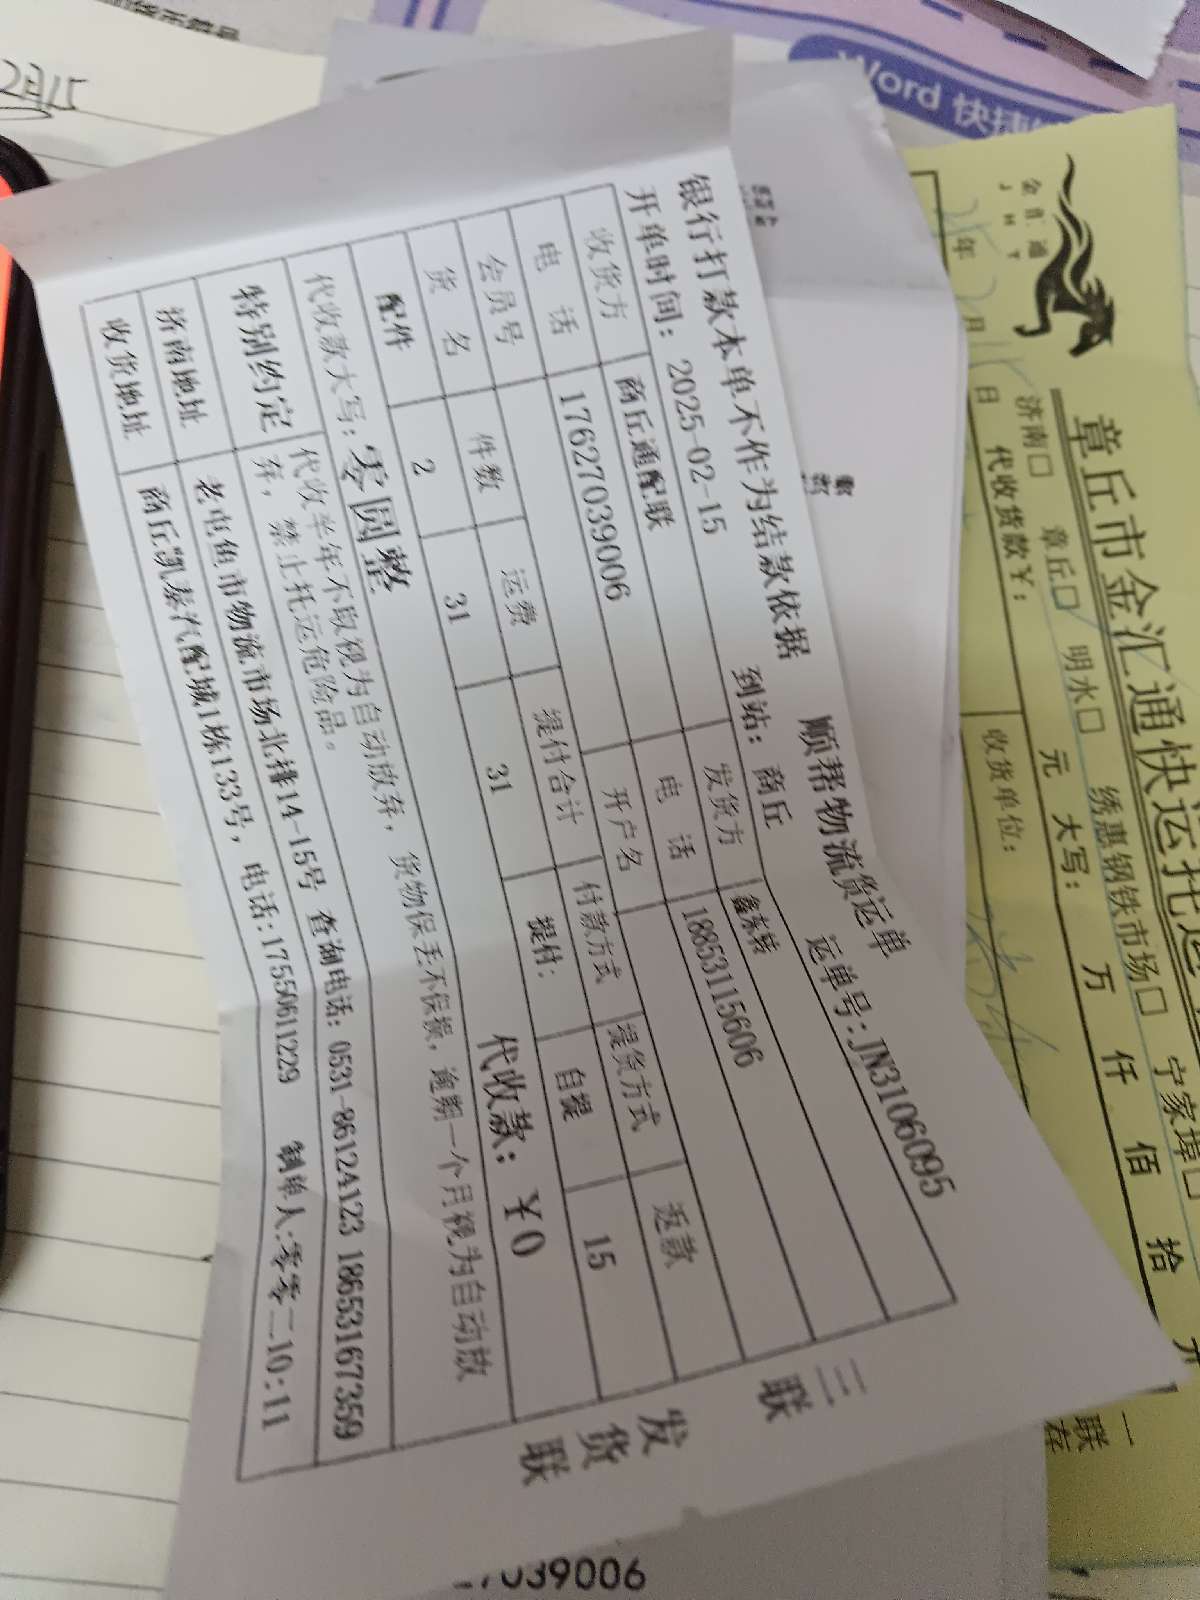 顺帮物流货运单
银行打款本单不作为结款依据
运单号:JN3106095
开单时间: 2025-02-15 到站: 商丘
收货方 商丘通配联 发货方 鑫东转
电话 17627039006 电话 18853115606
会员号 开户名
货名 件数 运费 提付合计 付款方式 提货方式 返款
配件 2 31 31 提付: 自提 15
代收款大写: 零圆整 代收款: ￥0
特别约定 代收半年不取视为自动放弃, 货物保丢不保损, 逾期一个月视为自动放
弃, 禁止托运危险品。
济南地址 老屯鱼市物流市场北排14-15号 查询电话: 0531-86124123 18653167359
收货地址 商丘凯泰汽配城1栋133号, 电话:17550611229 制单人:零零二10:11
三联
发货联
章丘市金汇通快运托运
JHT
济南□ 章丘□ 明水□ 绣惠钢铁市场□ 宁家埠□
年 月 日 代收货款￥: 元 大写: 万 仟 佰 拾
收货单位:
一联
存
Word 快捷
2月15
7039006